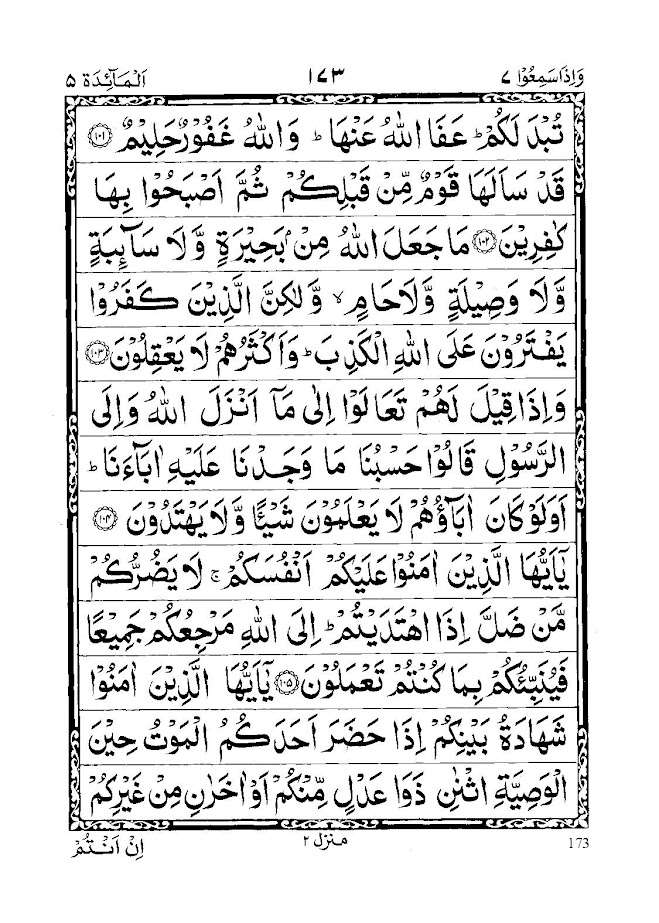 وَاِذَاسَمِعُوۡا ٧ ١٧٣ اَلۡمَآئِدَة ٥
تُبۡدَ لَكُمۡ ؕ عَفَا اللّٰهُ عَنۡهَا ؕ وَاللّٰهُ غَفُوۡرٌ حَلِيۡمٌ ﴿١٠١﴾
قَدۡ سَاَلَهَا قَوۡمٌ مِّنۡ قَبۡلِكُمۡ ثُمَّ اَصۡبَحُوۡا بِهَا
كٰفِرِيۡنَ ﴿١٠٢﴾ مَا جَعَلَ اللّٰهُ مِنۡۢ بَحِيۡرَةٍ وَّلَا سَآئِبَةٍ
وَّلَا وَصِيۡلَةٍ وَّلَا حَامٍ ۙ وَّلٰكِنَّ الَّذِيۡنَ كَفَرُوۡا
يَفۡتَرُوۡنَ عَلَى اللّٰهِ الۡكَذِبَ ؕ وَاَكۡثَرُهُمۡ لَا يَعۡقِلُوۡنَ ﴿١٠٣﴾
وَاِذَا قِيۡلَ لَهُمۡ تَعَالَوۡا اِلٰى مَاۤ اَنۡزَلَ اللّٰهُ وَاِلَى
الرَّسُوۡلِ قَالُوۡا حَسۡبُنَا مَا وَجَدۡنَا عَلَيۡهِ اٰبَآءَنَا ؕ
اَوَلَوۡ كَانَ اٰبَآؤُهُمۡ لَا يَعۡلَمُوۡنَ شَيۡـًٔا وَّلَا يَهۡتَدُوۡنَ ﴿١٠٤﴾
يٰۤاَيُّهَا الَّذِيۡنَ اٰمَنُوۡا عَلَيۡكُمۡ اَنۡفُسَكُمۡ ۚ لَا يَضُرُّكُمۡ
مَّنۡ ضَلَّ اِذَا اهۡتَدَيۡتُمۡ ؕ اِلَى اللّٰهِ مَرۡجِعُكُمۡ جَمِيۡعًا
فَيُنَبِّئُكُمۡ بِمَا كُنۡتُمۡ تَعۡمَلُوۡنَ ﴿١٠٥﴾ يٰۤاَيُّهَا الَّذِيۡنَ اٰمَنُوۡا
شَهَادَةُ بَيۡنِكُمۡ اِذَا حَضَرَ اَحَدَكُمُ الۡمَوۡتُ حِيۡنَ
الۡوَصِيَّةِ اثۡنٰنِ ذَوَا عَدۡلٍ مِّنۡكُمۡ اَوۡ اٰخَرٰنِ مِنۡ غَيۡرِكُمۡ
173 منزل ٢ اِنۡ اَنۡتُمۡ